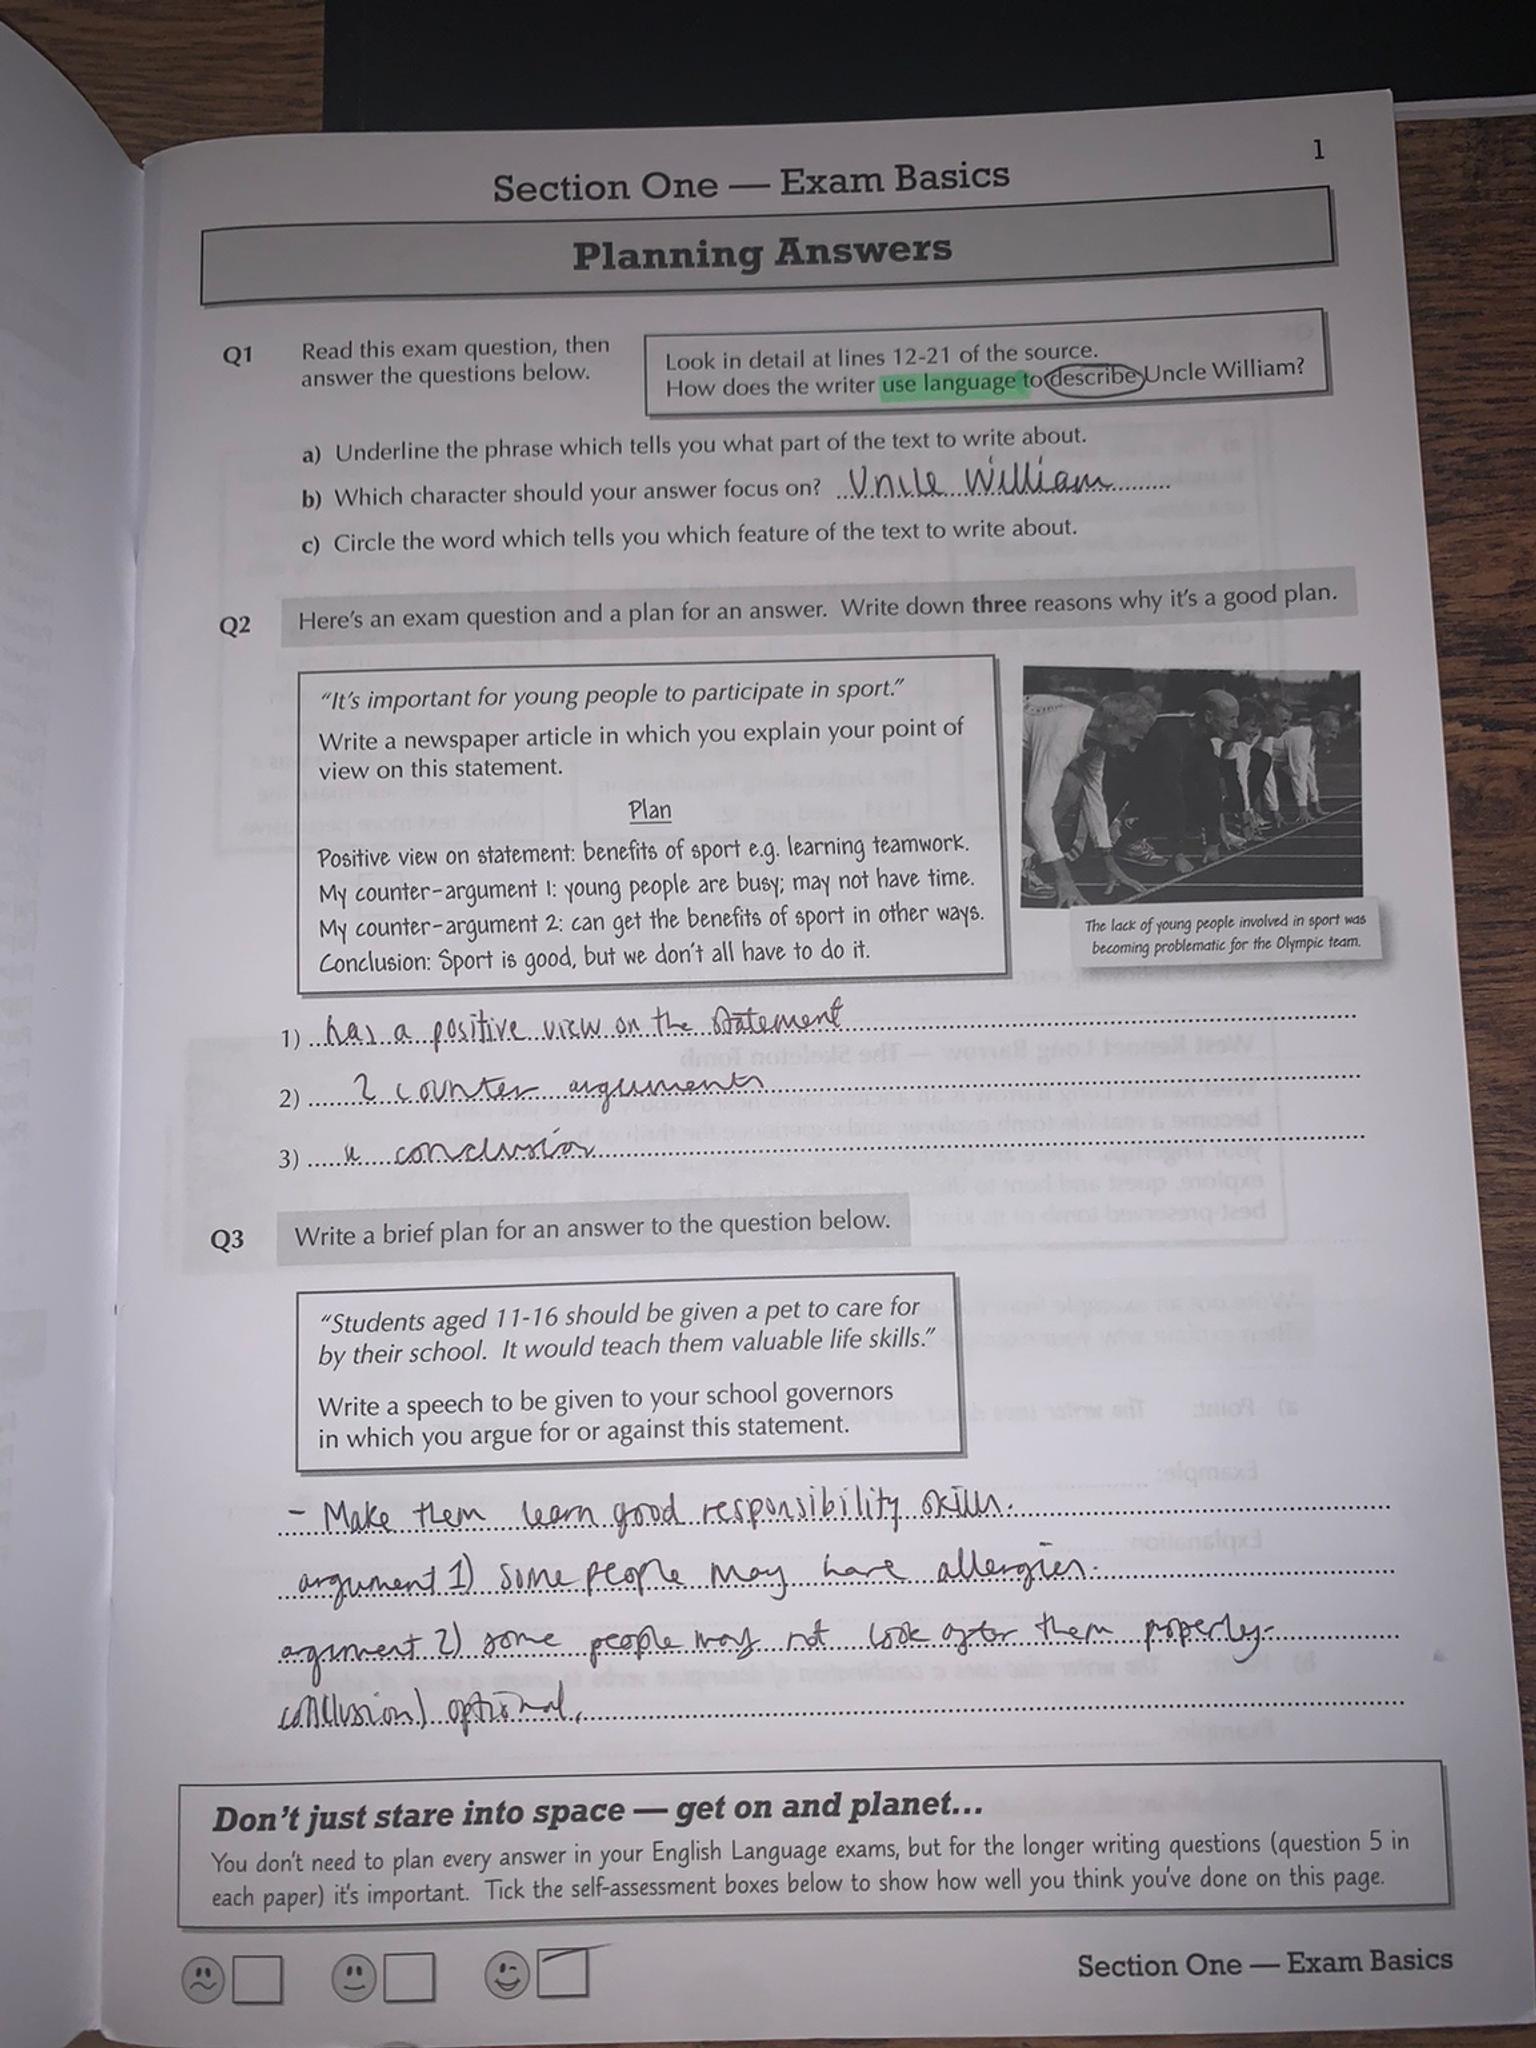 1
Section One — Exam Basics
Planning Answers
Q1 Read this exam question, then
answer the questions below.
Look in detail at lines 12-21 of the source.
How does the writer use language to describe Uncle William?
a) Underline the phrase which tells you what part of the text to write about.
b) Which character should your answer focus on? Uncle William
c) Circle the word which tells you which feature of the text to write about.
Q2 Here's an exam question and a plan for an answer. Write down three reasons why it's a good plan.
"It's important for young people to participate in sport."
Write a newspaper article in which you explain your point of
view on this statement.
Plan
Positive view on statement: benefits of sport e.g. learning teamwork.
My counter-argument 1: young people are busy; may not have time.
My counter-argument 2: can get the benefits of sport in other ways.
Conclusion: Sport is good, but we don't all have to do it.
The lack of young people involved in sport was
becoming problematic for the Olympic team.
1) has a positive view on the statement
2) 2 counter arguments
3) a conclusion
Q3 Write a brief plan for an answer to the question below.
"Students aged 11-16 should be given a pet to care for
by their school. It would teach them valuable life skills."
Write a speech to be given to your school governors
in which you argue for or against this statement.
- Make them learn good responsibility skills.
argument 1) some people may have allergies.
argument 2) some people may not look after them properly.
conclusion) optional.
Don't just stare into space — get on and planet...
You don't need to plan every answer in your English Language exams, but for the longer writing questions (question 5 in
each paper) it's important. Tick the self-assessment boxes below to show how well you think you've done on this page.
Section One — Exam Basics